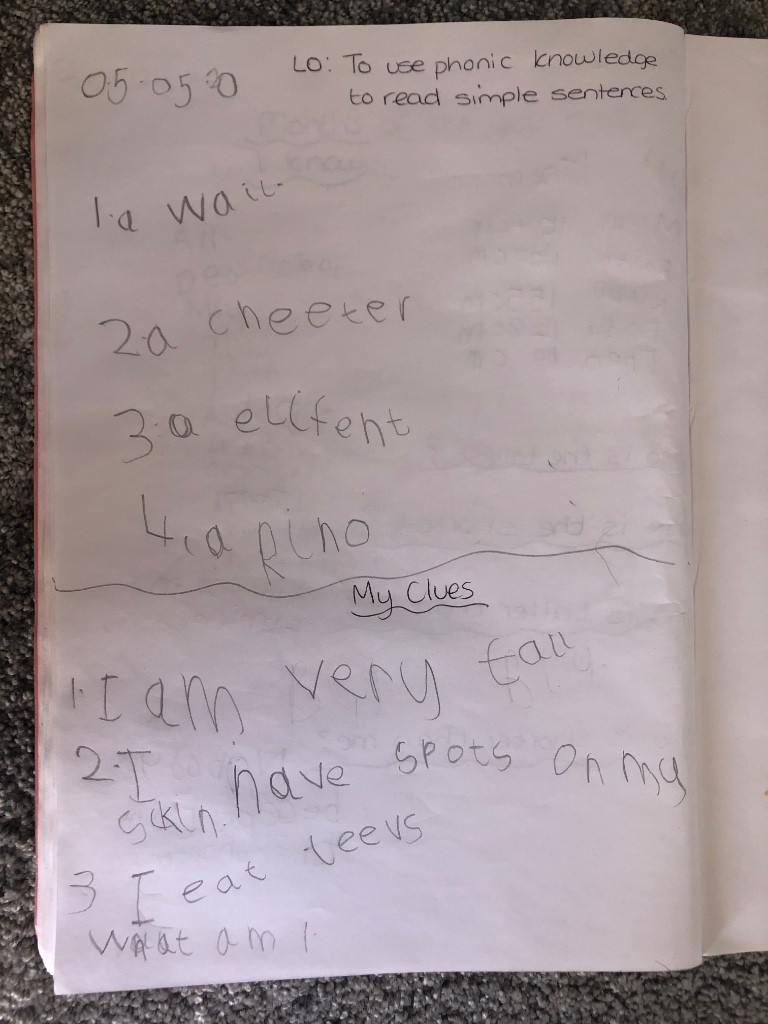 05.05.20
LO: To use phonic knowledge
to read simple sentences.
1.a wail
2a cheeter
3.a elifent
4.a rino
My Clues
1. I am very tall
2. I have spots on my
skin.
3 I eat leevs
What am I